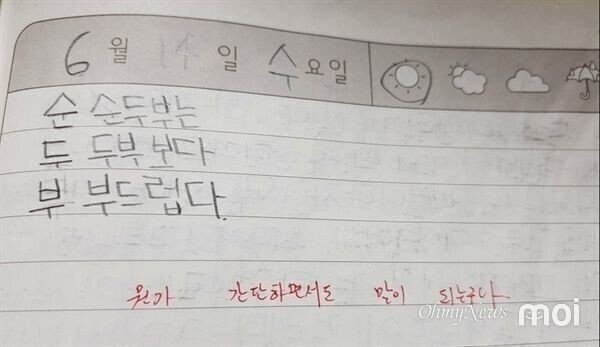 6월 14일 수요일
순 순두부는
두 두부보다
부 부드럽다.
원가 간단하면서도 말이 되는구나
OhmyNews moi